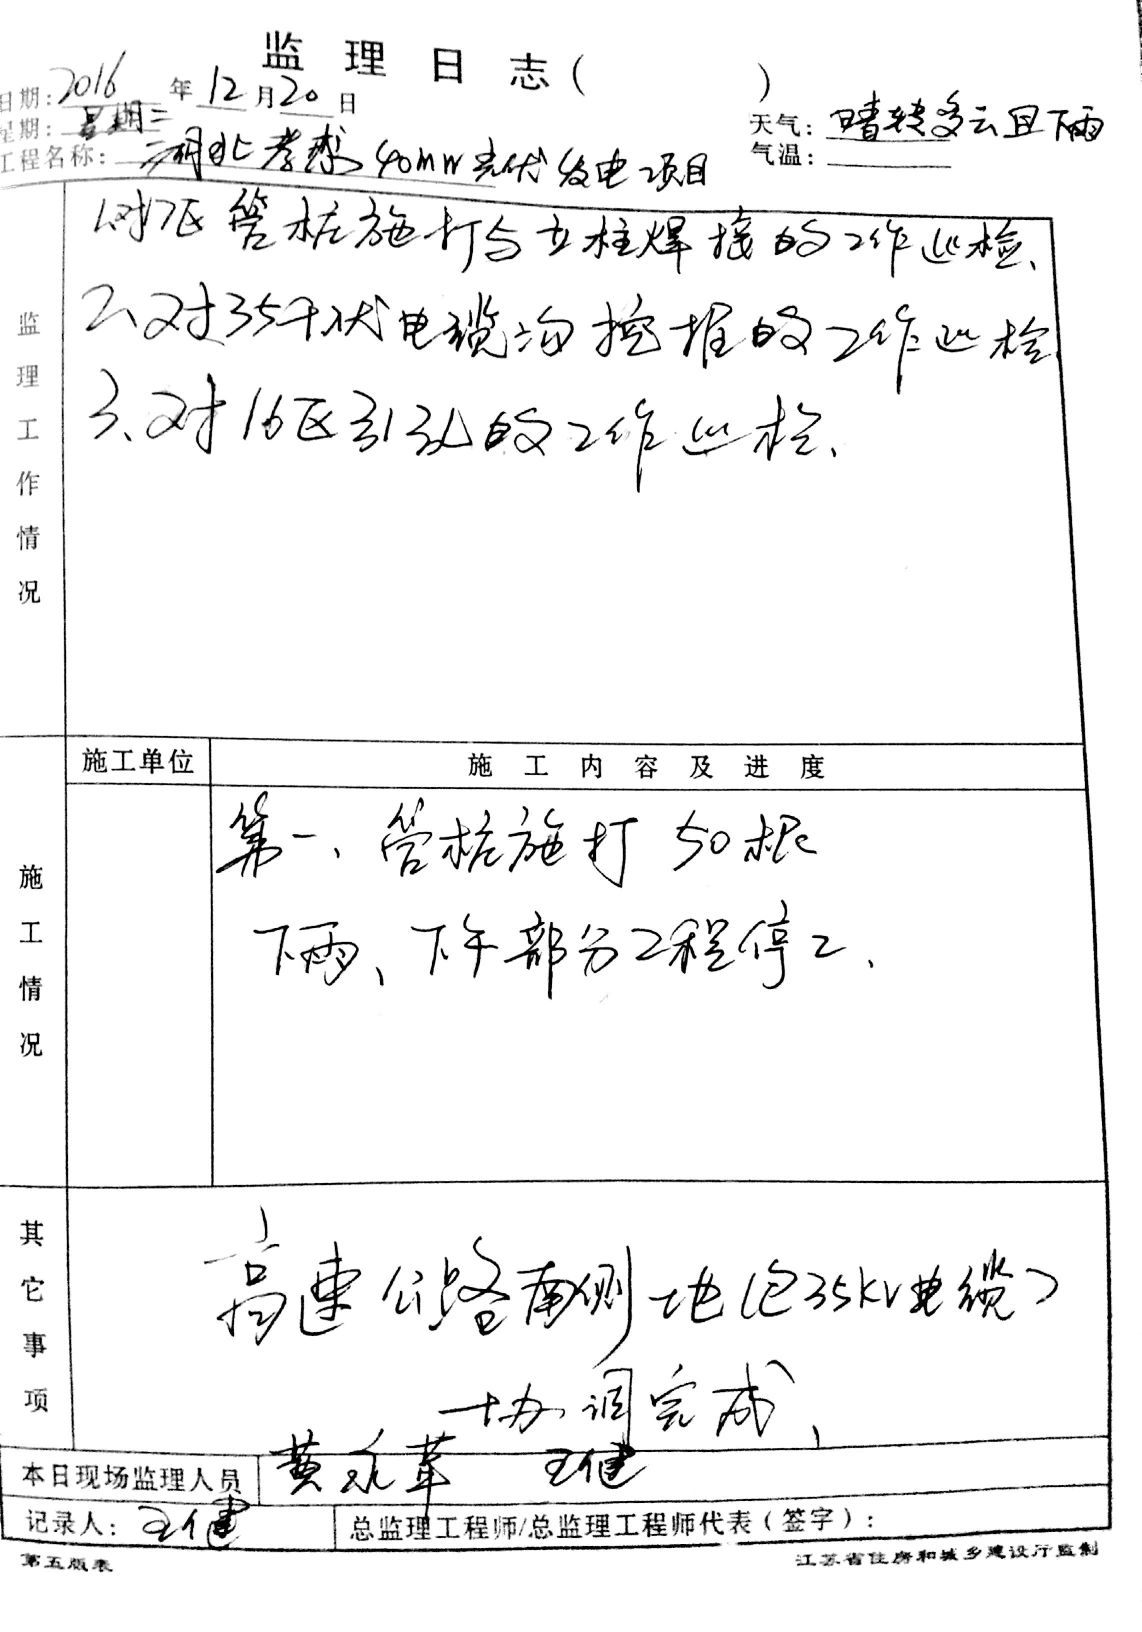 监理日志( )
日期:2016年12月20日
星期:星期二
天气:晴转多云且下雨
工程名称:湖北孝感40MW光伏发电项目
气温:
监理工作情况
1、对7区管桩施打与立柱焊接的工作巡检、
2、对35千伏电缆沟挖堆的工作巡检
3、对16区引孔的工作巡检、
施工单位 施工内容及进度
施工情况
第一、管桩施打50根
下雨、下午部分工程停工、
其它事项
高速公路南侧地(包35KV电缆)
协调完成、
本日现场监理人员 黄永 王健
记录人:王健 总监理工程师/总监理工程师代表(签字):
第五版表 江苏省住房和城乡建设厅监制